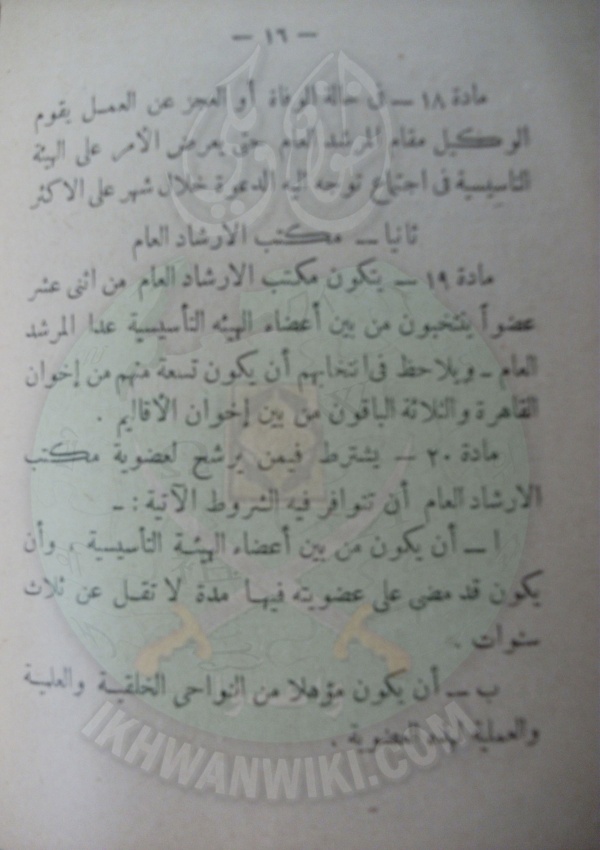 — ١٦ —
مادة ١٨ — فى حالة الوفاة أو العجز عن العمل يقوم
الوكيل مقام المرشد العام حتى يعرض الأمر على الهيئة
التأسيسية فى اجتماع توجه إليه الدعوة خلال شهر على الاكثر
ثانيا — مكتب الارشاد العام
مادة ١٩ — يتكون مكتب الارشاد العام من اثنى عشر
عضواً ينتخبون من بين أعضاء الهيئه التأسيسية عدا المرشد
العام ـ ويلاحظ فى انتخابهم أن يكون تسعة منهم من إخوان
القاهرة والثلاثة الباقون من بين إخوان الأقاليم .
مادة ٢٠ — يشترط فيمن يرشح لعضوية مكتب
الارشاد العام أن تتوافر فيه الشروط الآتية : ـ
ا — أن يكون من بين أعضاء الهيئة التأسيسية ، وأن
يكون قد مضى على عضويته فيها مدة لا تقل عن ثلاث
سنوات .
ب — أن يكون مؤهلا من النواحى الخلقية والعلمية
والعملية لهذه العضوية .
IKHWANWIKI.COM